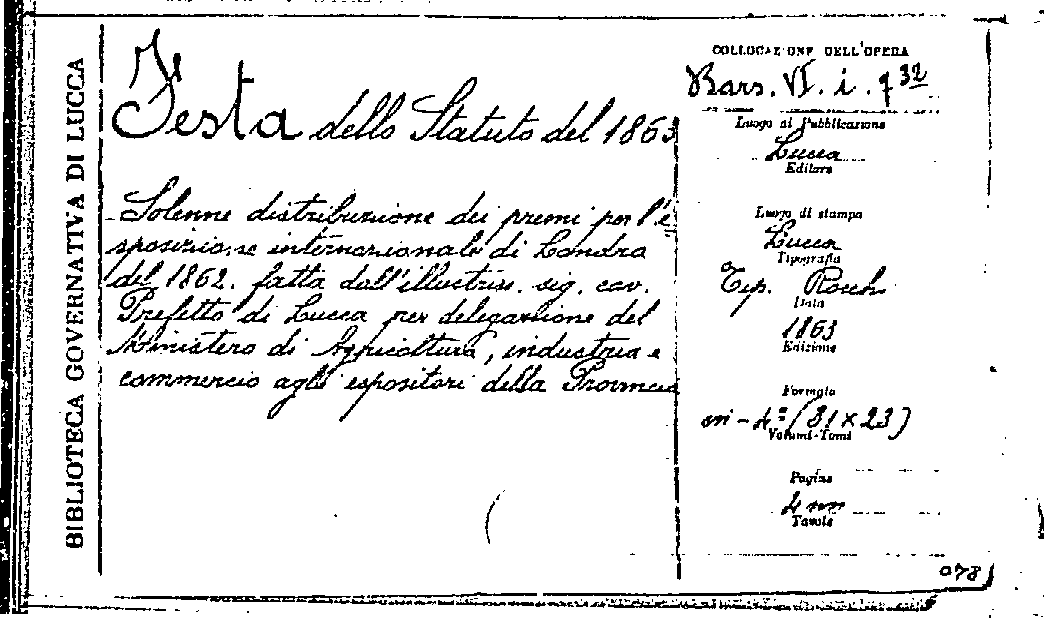 BIBLIOTECA GOVERNATIVA DI LUCCA
Festa dello Statuto del 1863
Solenne distribuzione dei premi per l'e
sposizione internazionale di Londra
del 1862. fatta dall'illustriss. sig. cav.
Prefetto di Lucca per delegazione del
Ministero di Agricoltura, industria e
commercio agli espositori della Provincia
COLLOCAZIONE DELL'OPERA
Bars. VI. i. 7 32
Luogo di Pubblicazione
Lucca
Editore
Luogo di stampa
Lucca
Tipografia
Tip. Rocchi
Data
1863
Edizione
Formato
in-4° (31 x 23)
Volumi-Tomi
Pagine
4 nn
Tavole
078